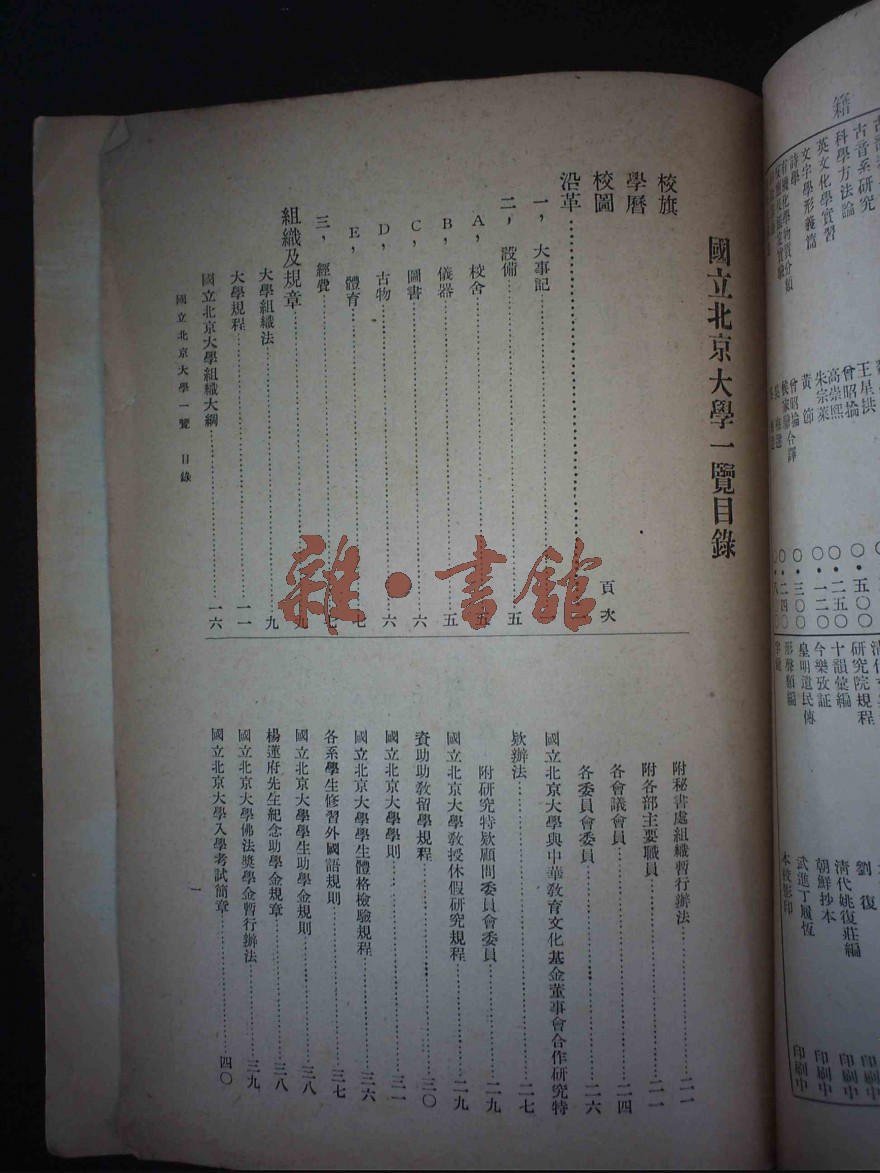 國立北京大學一覽目錄
頁次
校旗
學曆
校圖
沿革
一，大事記
二，設備……五
A，校舍……五
B，儀器……五
C，圖書……六
D，古物……六
E，體育……七
三，經費……七
組織及規章……九
大學組織法……九
大學規程……一一
國立北京大學組織大綱……一六
附秘書處組織暫行辦法……二一
附各部主要職員……二一
各會議會員……二四
各委員會委員……二六
國立北京大學與中華敎育文化基金董事會合作研究特
欵辦法……二七
附研究特欵顧問委員會委員……二九
國立北京大學敎授休假研究規程……二九
資助助敎留學規程……三〇
國立北京大學學則……三一
國立北京大學學生體格檢驗規程……三六
各系學生修習外國語規則……三七
國立北京大學學生助學金規則……三八
楊蓮府先生紀念助學金規章……三八
國立北京大學佛法獎學金暫行辦法……三九
國立北京大學入學考試簡章……四〇
國立北京大學一覽 目錄
一
雜·書館
籍
古音系研究
科學方法論 王星拱 〇·五〇〇
英文化學實習 高崇熙 〇·二五〇
文字學形義篇 朱宗萊 〇·一二〇
詩學 黃節 〇·三〇〇
有機化學物質分類 曾昭掄合譯 〇·二四〇
研究院規程
十韻彙編 劉復 印刷中
今樂攷証 清代姚復莊編 印刷中
皇明遺民傳 朝鮮抄本 印刷中
形聲類編 武進丁履恆 印刷中
本校影印